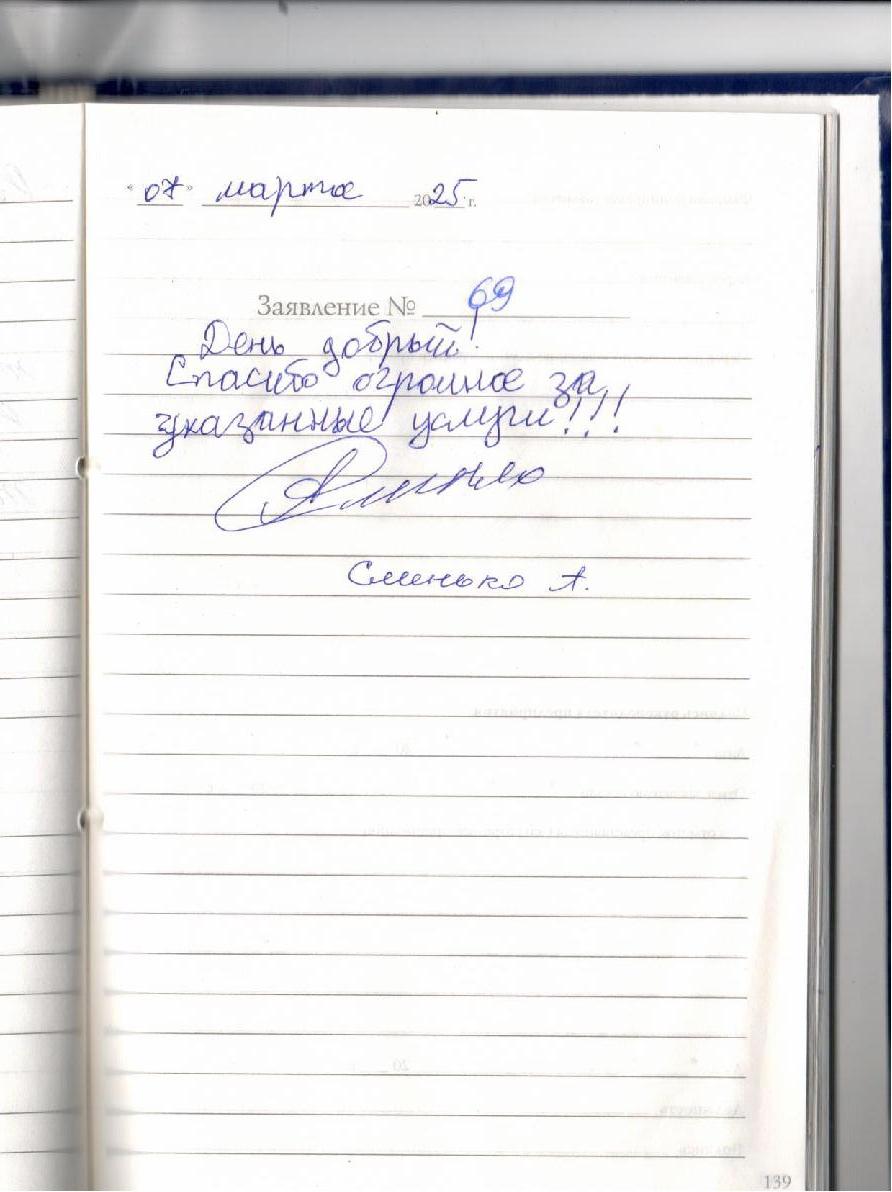 "07" марта 2025 г.
Заявление № 69
День добрый!
Спасибо огромное за
указанные услуги!!!
Сменько А.
139